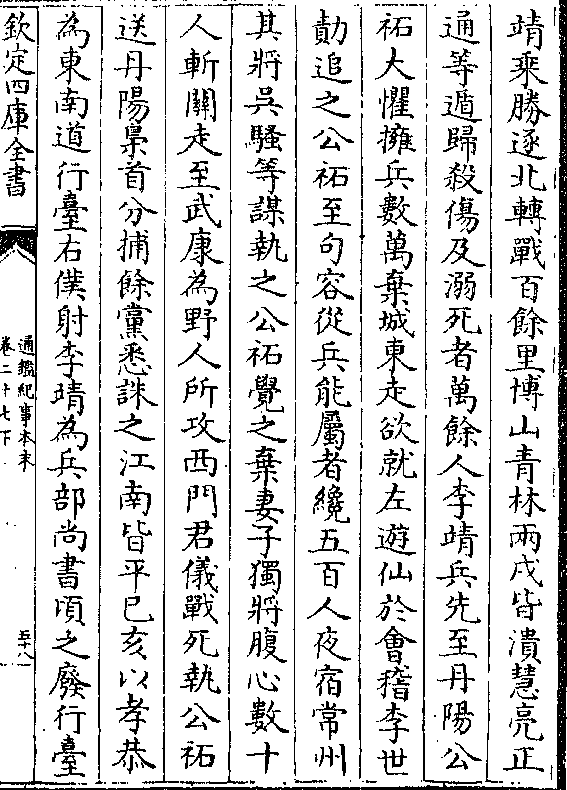 靖乗勝逐北轉戰百餘里博山青林兩戍皆潰慧亮正
通等遁歸殺傷及溺死者萬餘人李靖兵先至丹陽公
祏大懼擁兵數萬棄城東走欲就左遊仙於會稽李世
勣追之公祏至句容從兵能屬者纔五百人夜宿常州
其將吳騷等謀執之公祏覺之棄妻子獨將腹心數十
人斬關走至武康為野人所攻西門君儀戰死執公祏
送丹陽梟首分捕餘黨悉誅之江南皆平已亥以孝恭
為東南道行臺右僕射李靖為兵部尚書頃之廢行臺
欽定四庫全書
通鑑紀事本末
卷二十七下
五十八